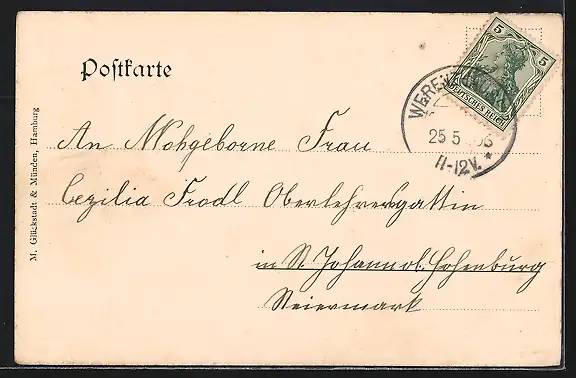 Postkarte
5 5
DEUTSCHES REICH
25 5
11-12V. *
An Wohgeborne Frau
Cezilia Frodl Oberlehrersgattin
in St. Johann ob. Hohenburg
Steiermark
M. Glückstadt & Münden, Hamburg